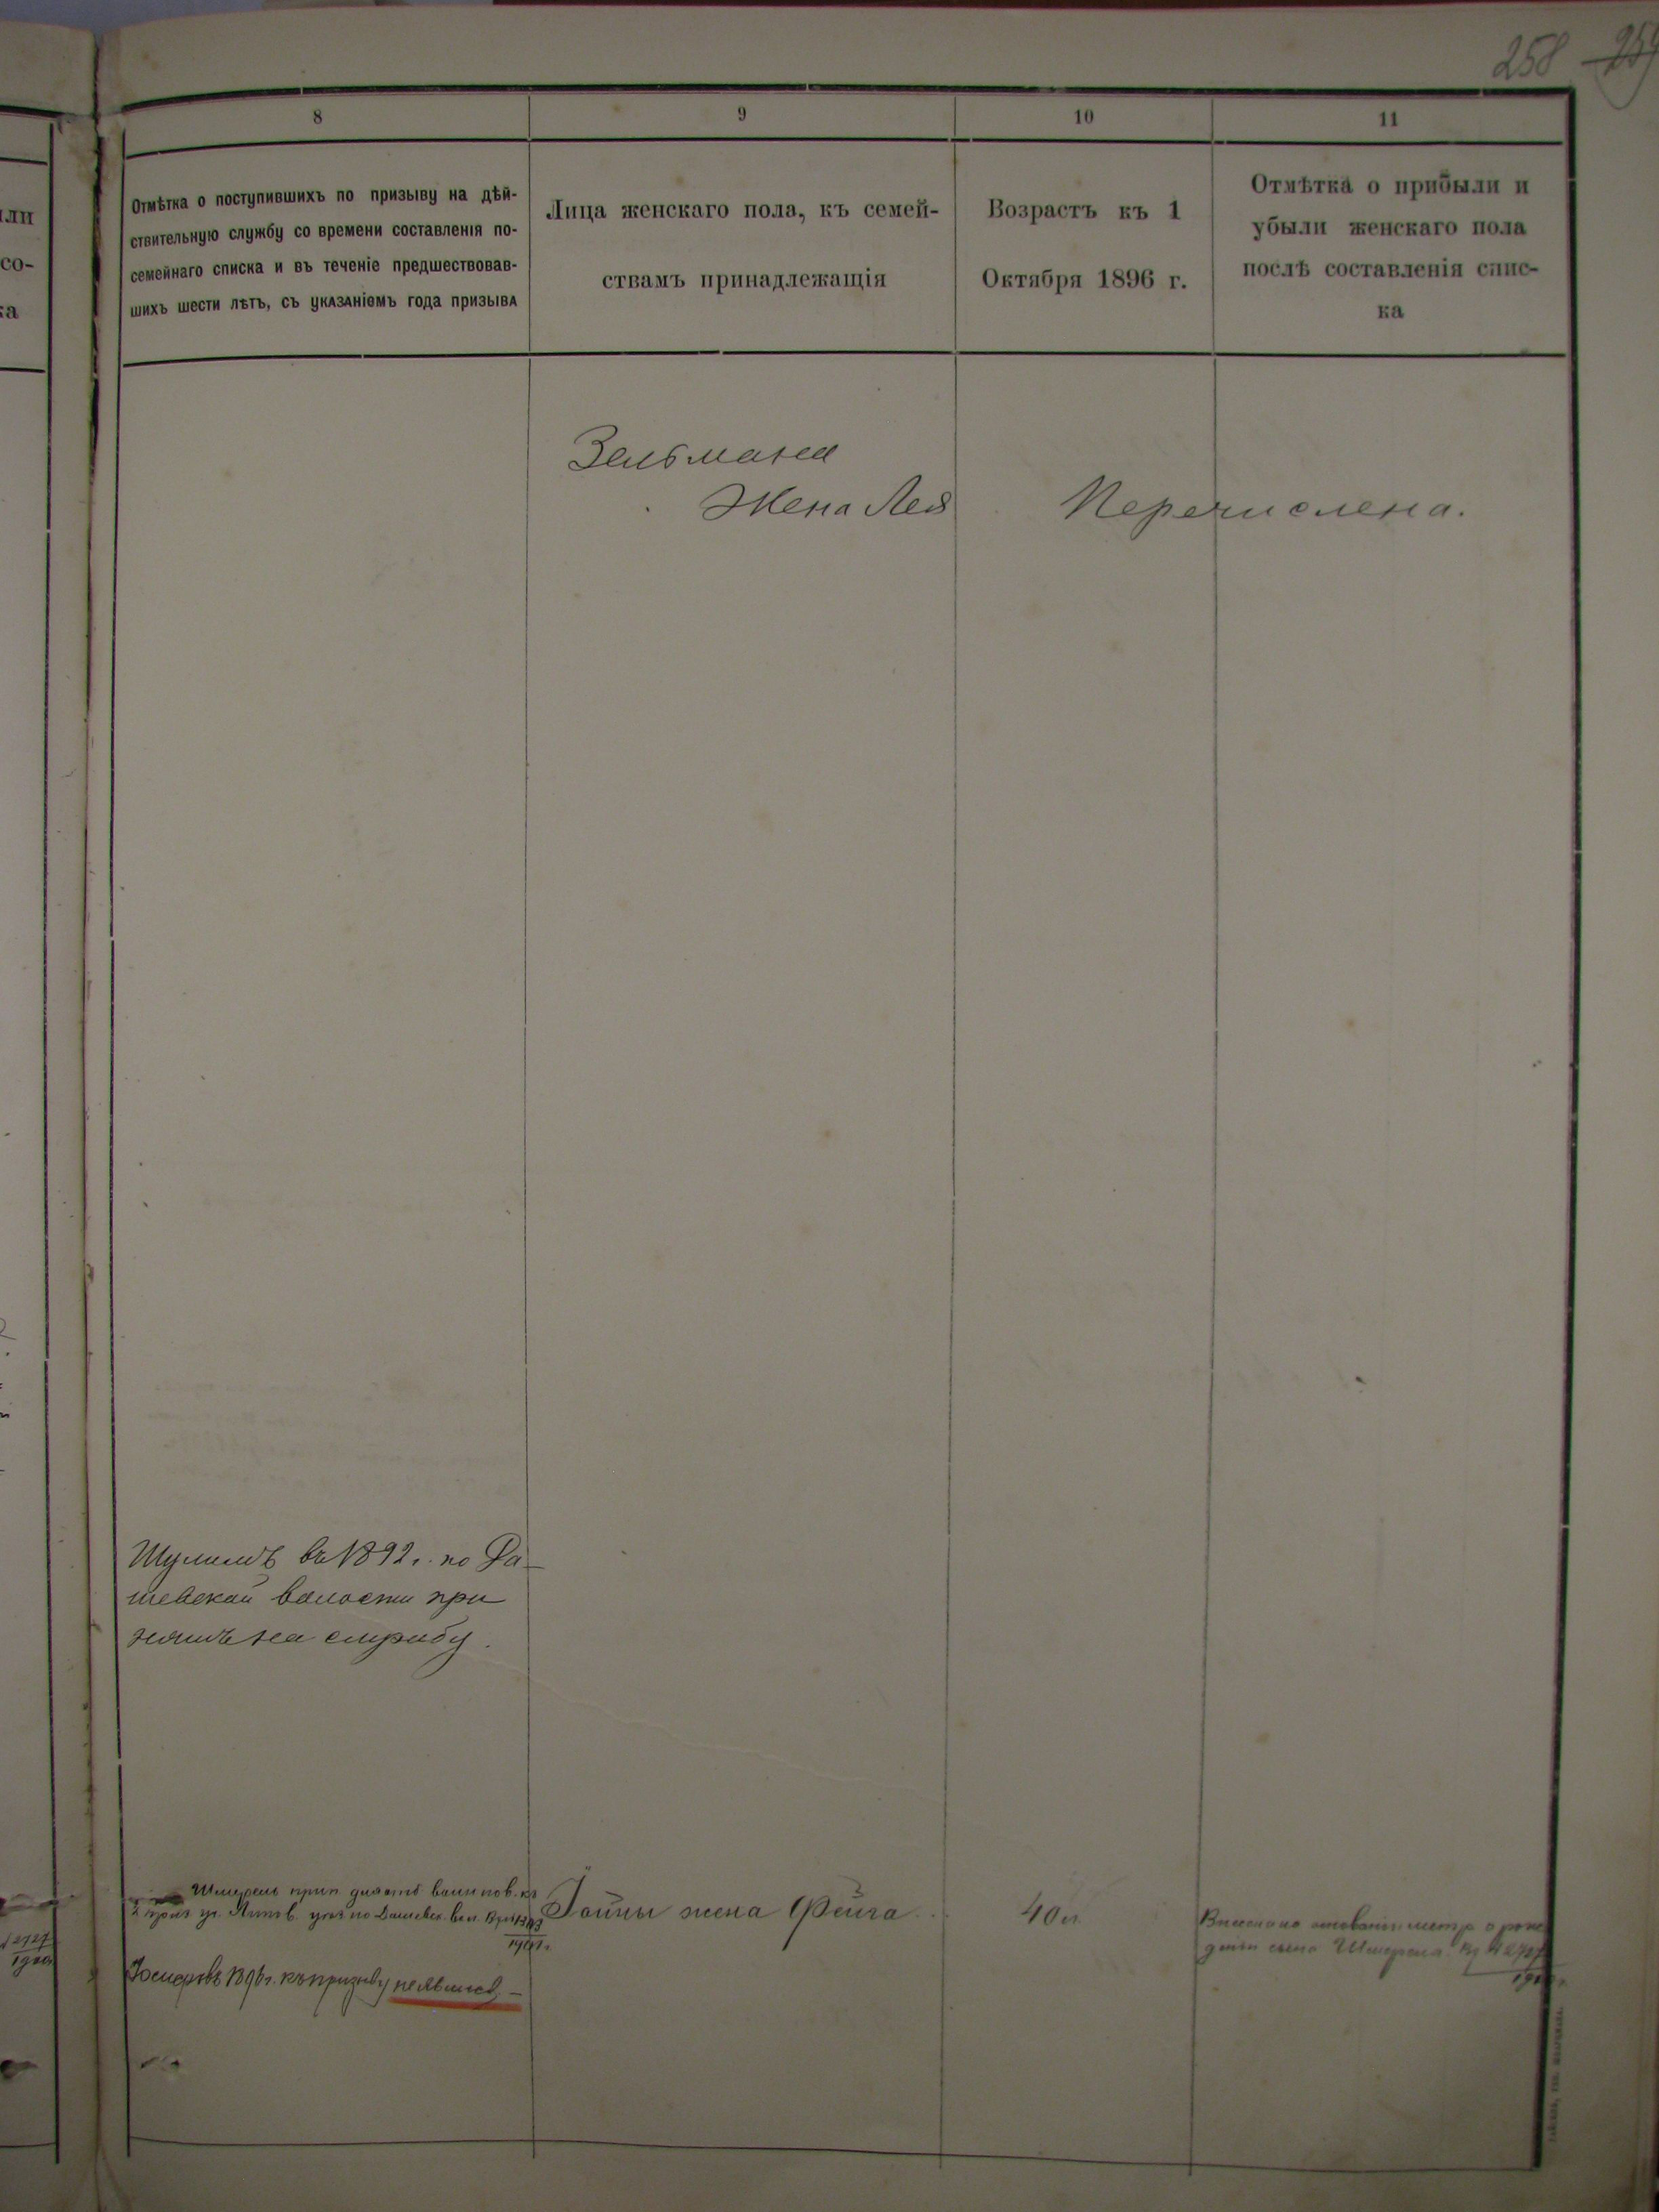 258
8
9
10
11
Отмѣтка о поступившихъ по призыву на дѣй-
ствительную службу со времени составленія по-
семейнаго списка и въ теченіе предшествовав-
шихъ шести лѣтъ, съ указаніемъ года призыва
Лица женскаго пола, къ семей-
ствамъ принадлежащія
Возрастъ къ 1
Октября 1896 г.
Отмѣтка о прибыли и
убыли женскаго пола
послѣ составленія спис-
ка
или
со-
ка
Зельмана
Жена Лея
Перечислена.
Шулимъ въ 1892 г. по Да-
шевской волости при
нятъ на службу.
Шмерель
по Дашевск. вол.
1901 г.
Іойны жена Фейга
40 л.
метр. о рож
деніи сына Шмереля
2727
1896 г. къ призыву не явился, –